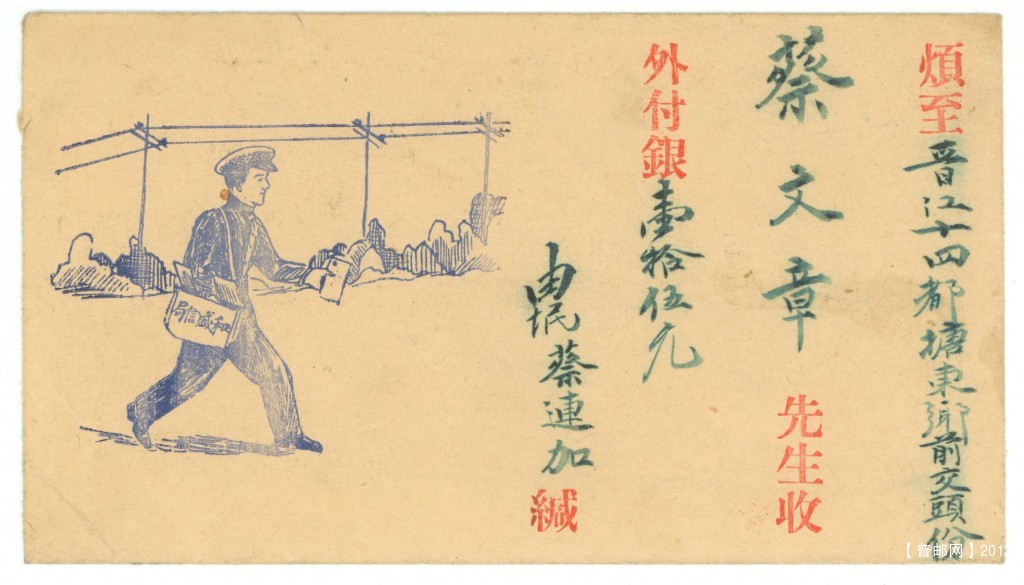 煩至晋江十四都塘東鄉前文頭份
蔡文章先生收
外付銀壹拾伍元
由垊蔡連加緘
和盛信局
【普邮网】201